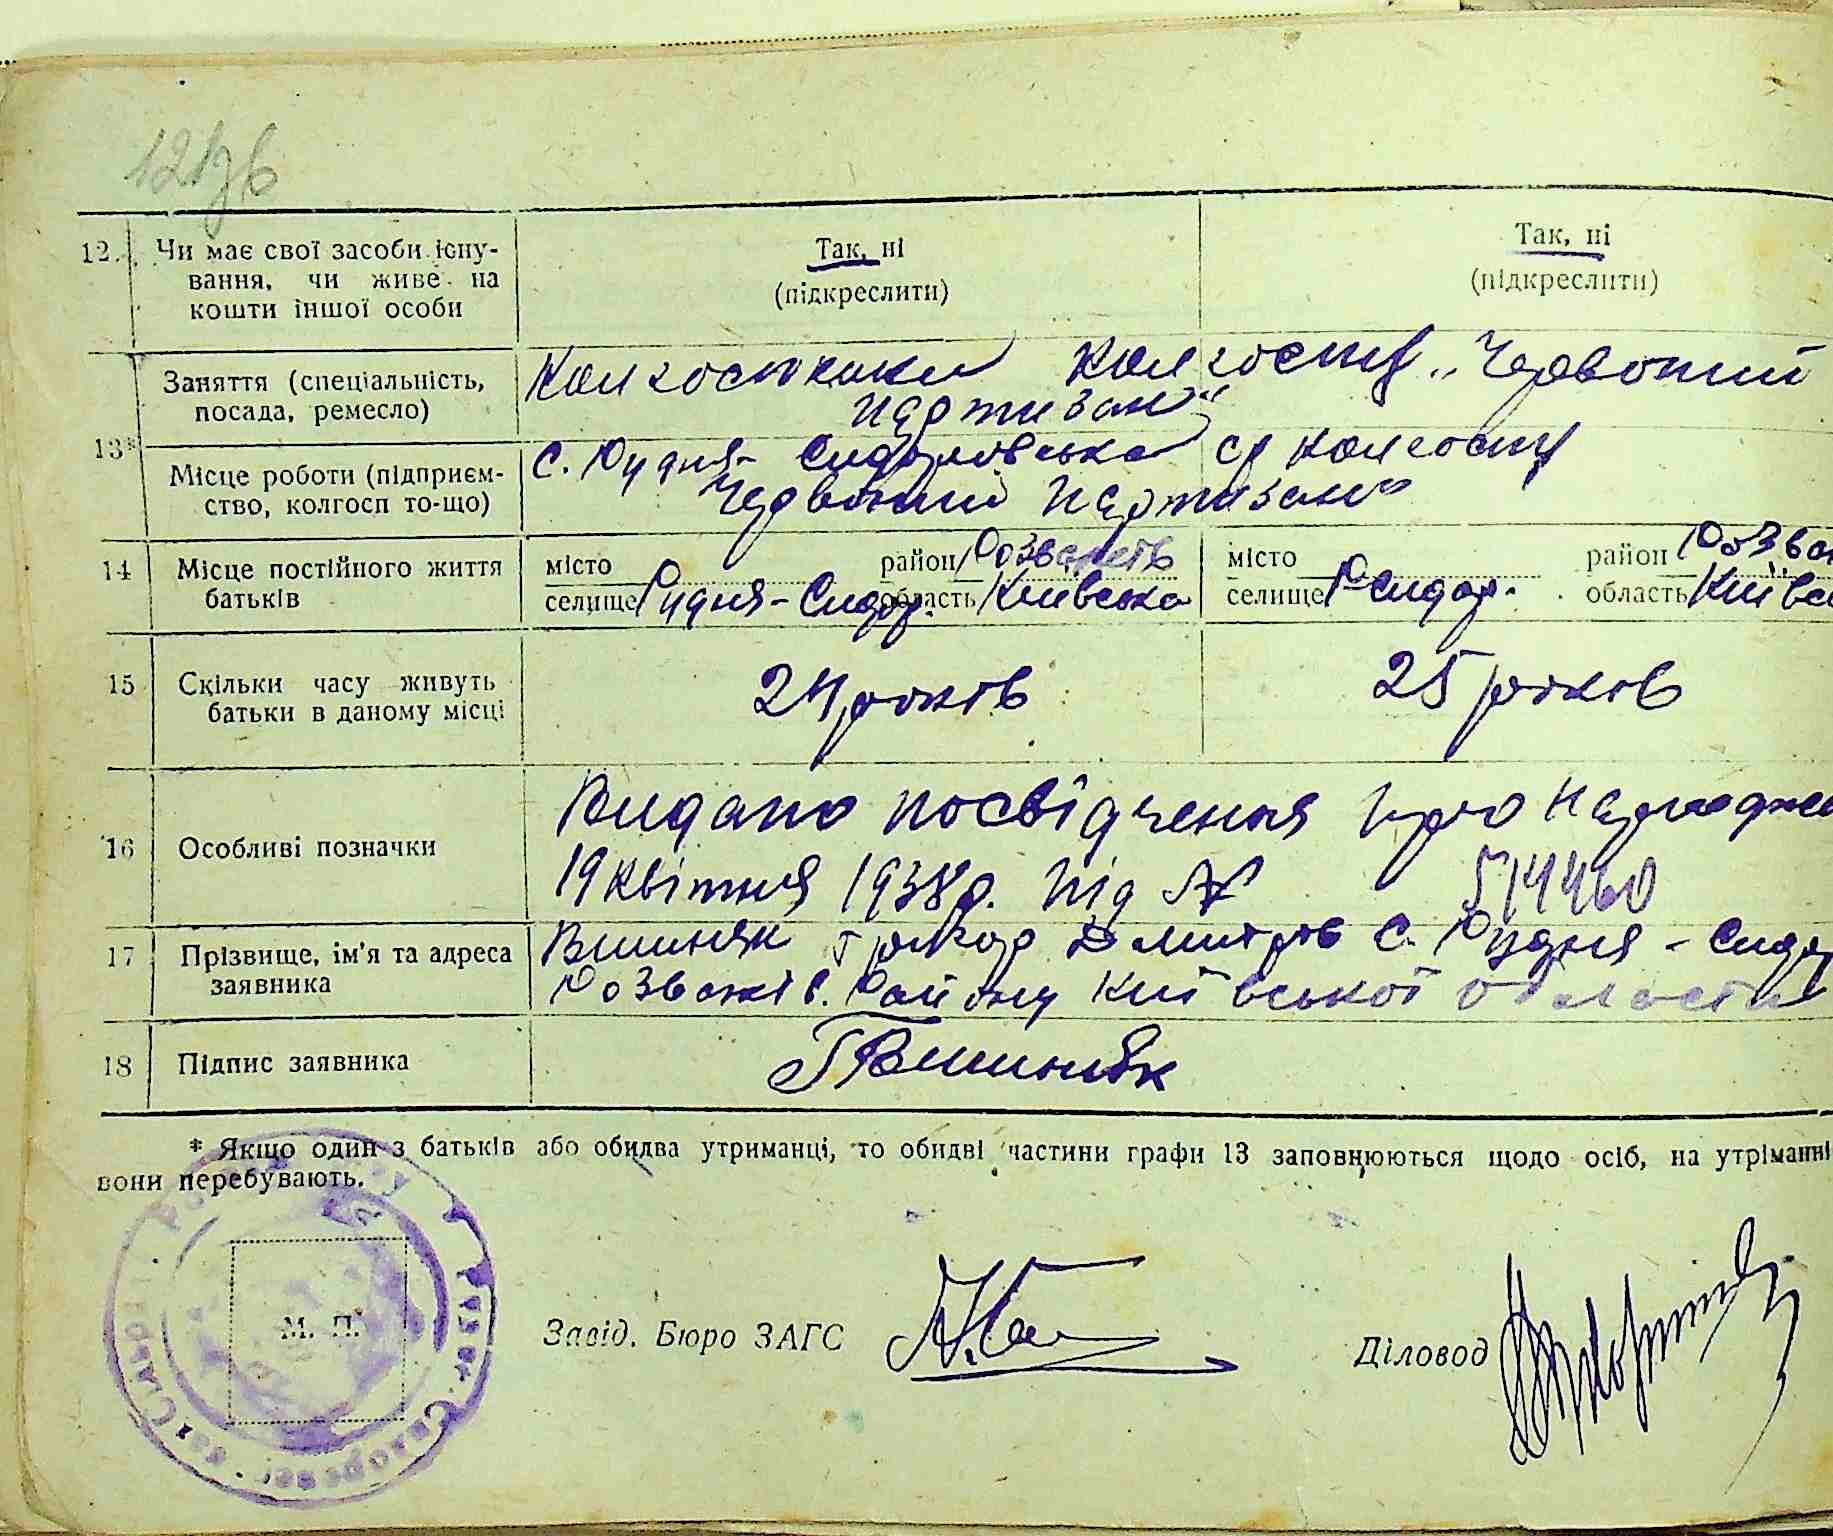 12.
Чи має свої засоби існу-
вання, чи живе на
кошти іншої особи
Так, ні
(підкреслити)
Так, ні
(підкреслити)
13*
Заняття (спеціальність,
посада, ремесло)
Колгоспники колгоспу „Червоний
Партизан“
Місце роботи (підприєм-
ство, колгосп то-що)
с. Рудня-Сидорівська с/ колгоспу
Червоний Партизан"
14
Місце постійного життя
батьків
місто район Розважів
селище Рудня-Сидор. область Київська
місто район Розва
селище Р Сидор. область Київс
15
Скільки часу живуть
батьки в даному місці
24 років
25 років
16
Особливі позначки
Видано посвідчення про народже
19 квітня 1938 р. під № 514460
17
Прізвище, ім'я та адреса
заявника
Вишняк Дмитрів с. Рудня-Сидор
Розважів. Району Київської області
18
Підпис заявника
Г Вишняк
* Якщо один з батьків або обидва утриманці, то обидві частини графи 13 заповнюються щодо осіб, на утріманні
вони перебувають.
М. П.
Завід. Бюро ЗАГС
Діловод